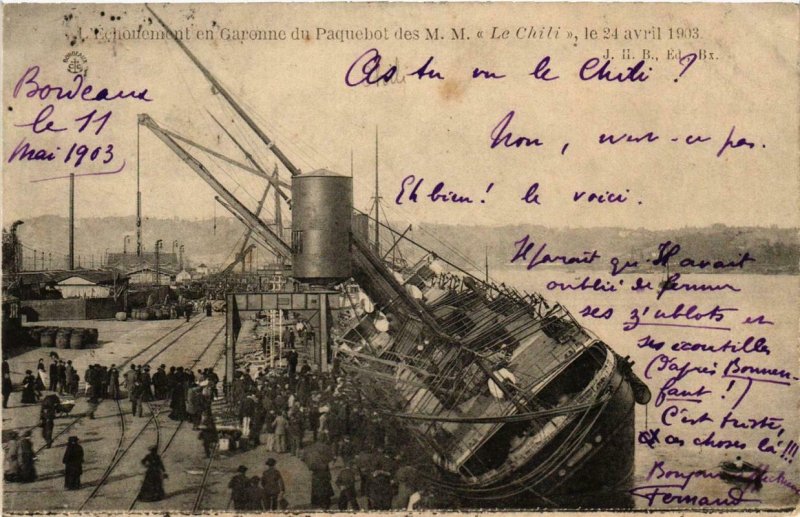 L'Echouement en Garonne du Paquebot des M. M. « Le Chili », le 24 avril 1903.
J. H. B., Ed., Bx.
BORDEAUX
Bordeaux
le 11
Mai 1903
As tu vu le Chili ?
Non, n'est-ce pas.
Eh bien! le voici.
Il parait qu'Il avait
oublié de fermer
ses z'ublots et
ses écoutilles
(d'après Bonnen-
faut !)
C'est triste,
ces choses là !!!
Bonjour
Fernand